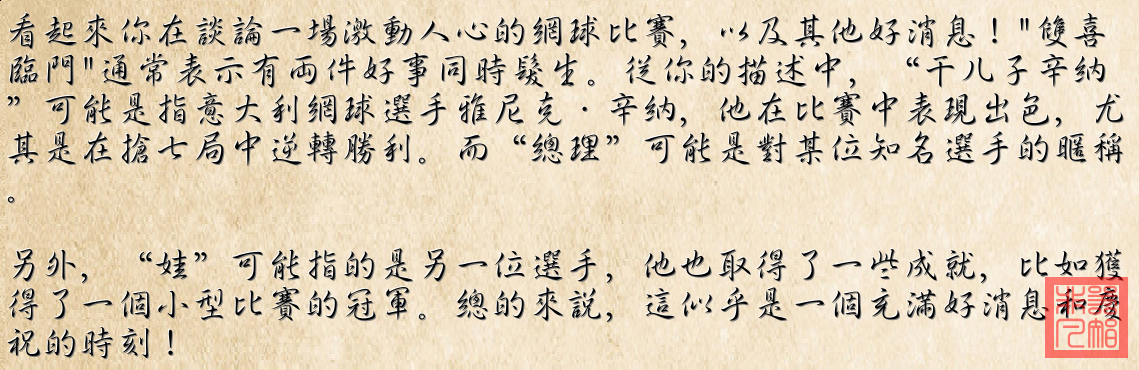 看起來你在談論一場激動人心的網球比賽，以及其他好消息！"雙喜
臨門"通常表示有兩件好事同時髮生。從你的描述中，“干儿子辛纳
”可能是指意大利網球選手雅尼克·辛纳，他在比賽中表現出色，尤
其是在搶七局中逆轉勝利。而“總理”可能是對某位知名選手的暱稱
。
另外，“娃”可能指的是另一位選手，他也取得了一些成就，比如獲
得了一個小型比賽的冠軍。總的來説，這似乎是一個充滿好消息和慶
祝的時刻！